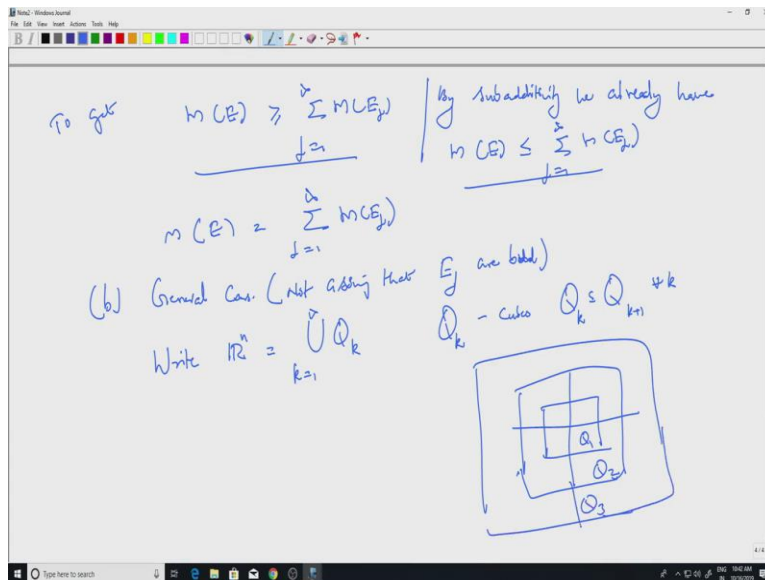 Note2 - Windows Journal
File Edit View Insert Actions Tools Help
To get m(E) ≥ ∑_{j=1}^∞ m(E_j)
By subadditivity we already have
m(E) ≤ ∑_{j=1}^∞ m(E_j)
m(E) = ∑_{j=1}^∞ m(E_j)
(b) General Case. (Not assuming that E_j are bdd)
Write ℝ^n = ⋃_{k=1}^∞ Q_k Q_k - cubes Q_k ⊆ Q_{k+1} ∀ k
Q_1
Q_2
Q_3
4/4
Type here to search
ENG 10:42 AM
IN 10/16/2019